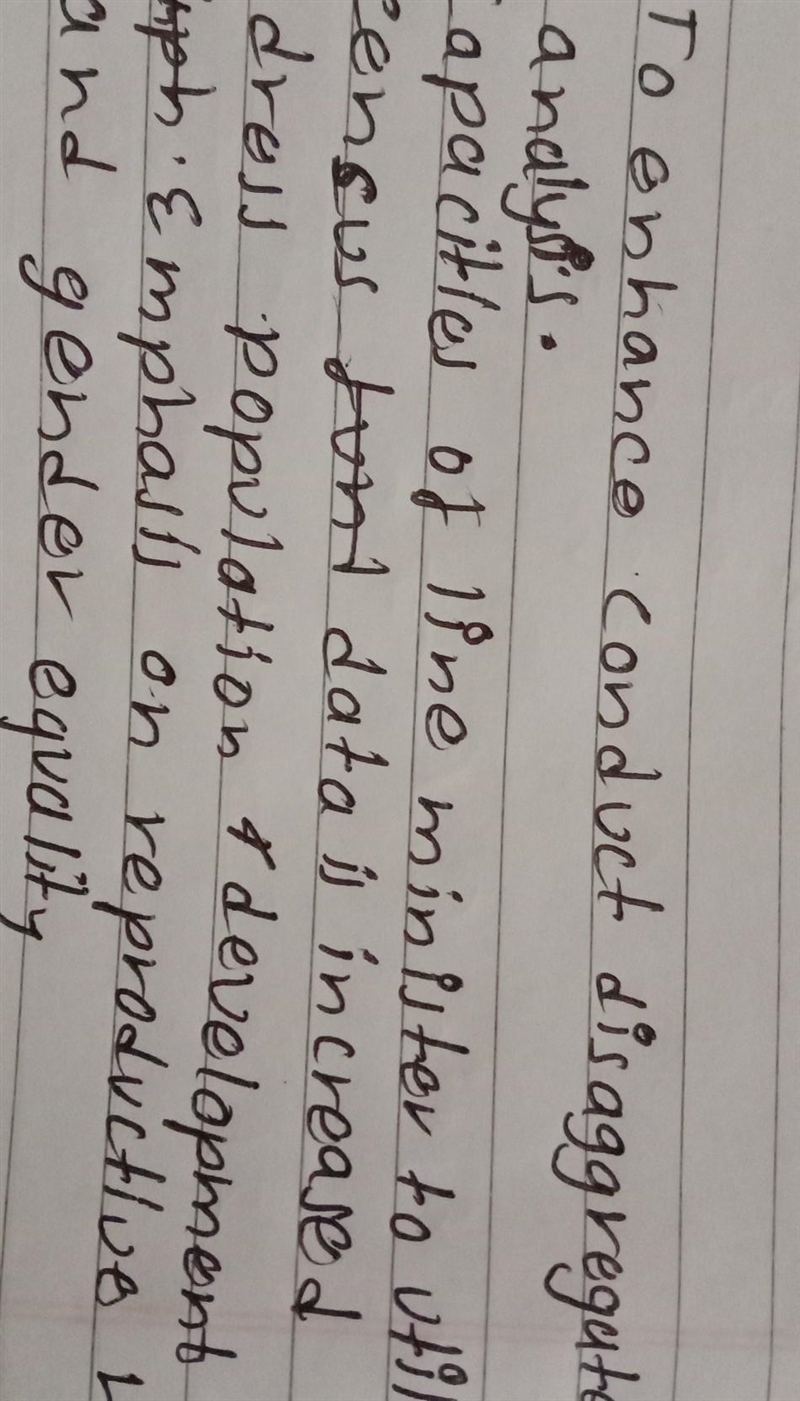 To enhance conduct disaggregate
analysis.
apacities of line minister to util
ensus data is increased
dress population & development
Emphasis on reproductive
and gender equality